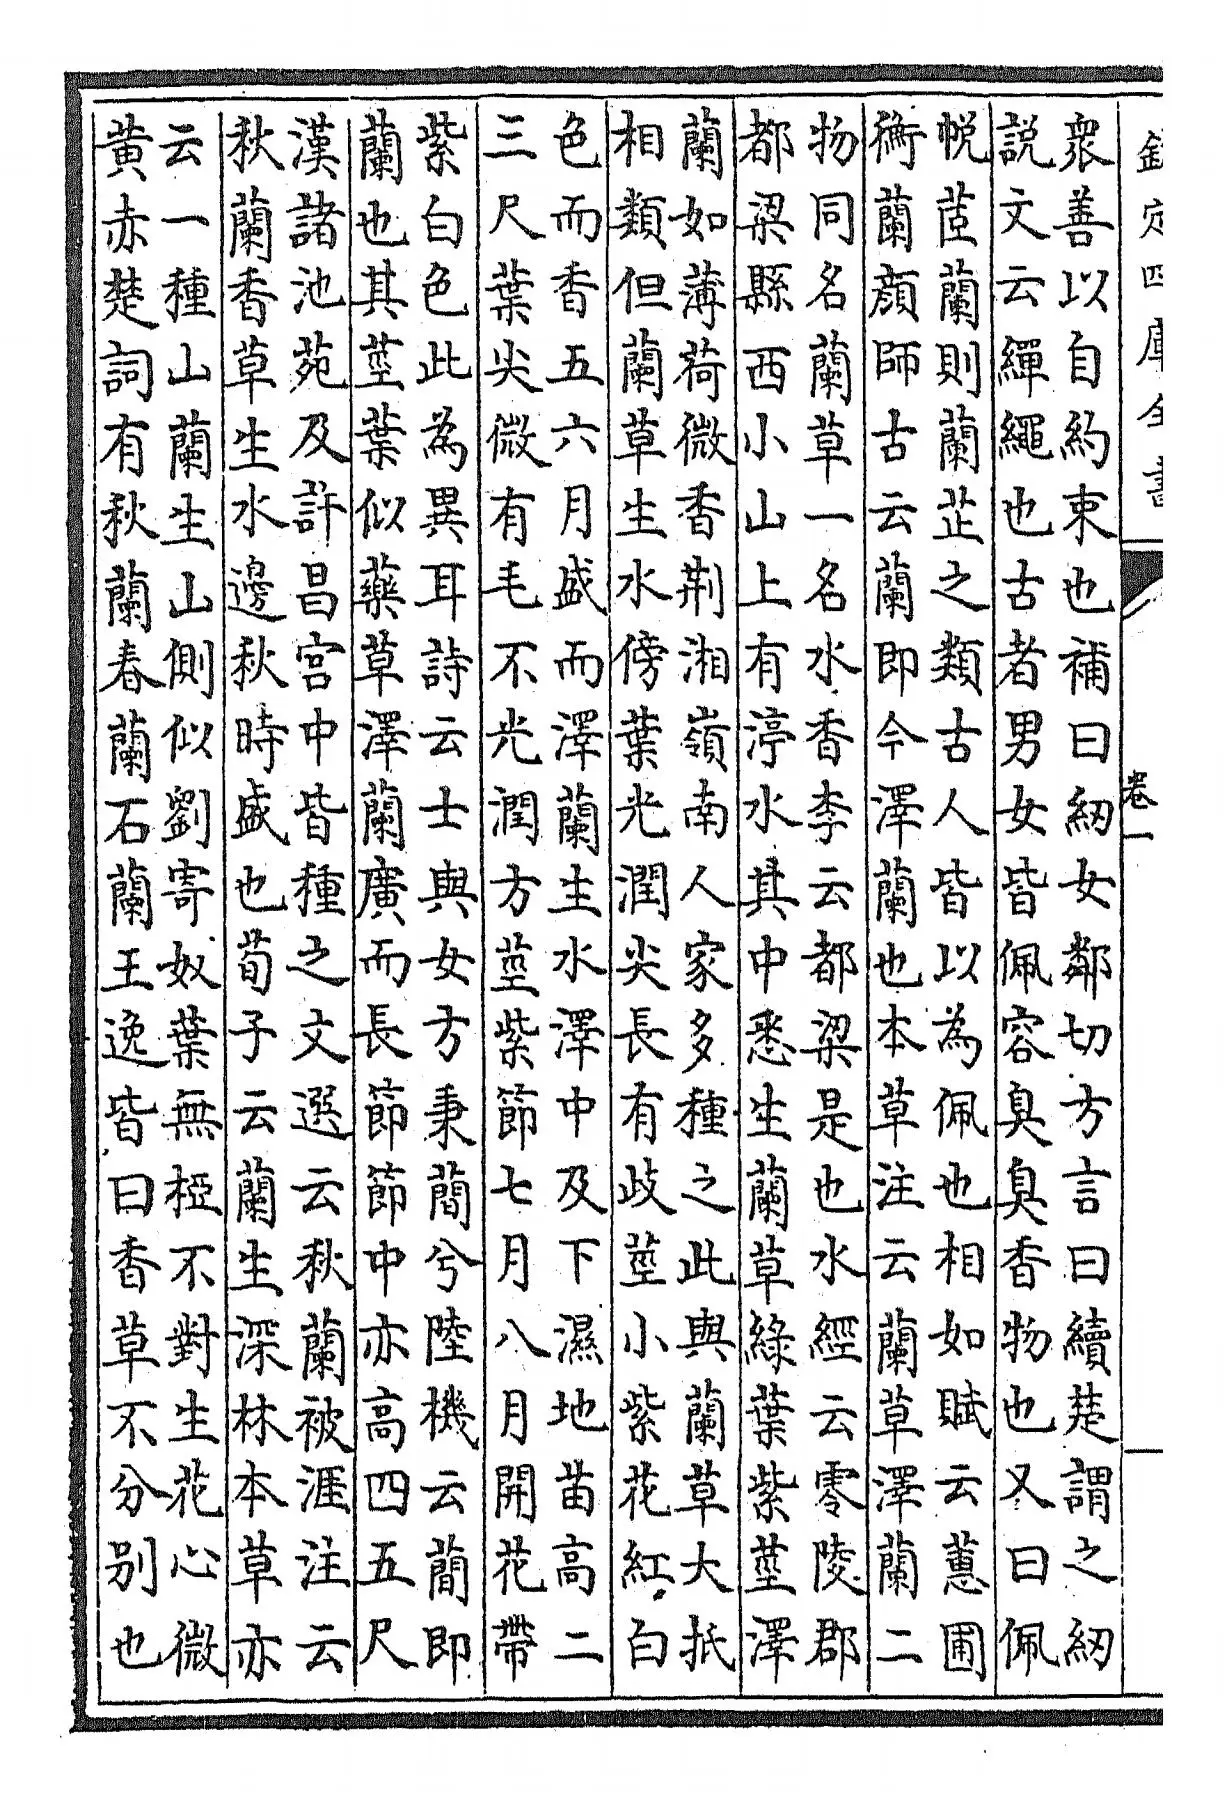 欽定四庫全書
卷一
衆善以自約束也補曰紉女鄰切方言曰續楚謂之紉
説文云繟繩也古者男女皆佩容臭臭香物也又曰佩
帨茝蘭則蘭芷之類古人皆以為佩也相如賦云蕙圃
衡蘭顔師古云蘭即今澤蘭也本草注云蘭草澤蘭二
物同名蘭草一名水香李云都梁是也水經云零陵郡
都梁縣西小山上有渟水其中悉生蘭草綠葉紫莖澤
蘭如薄荷微香荆湘嶺南人家多種之此與蘭草大抵
相類但蘭草生水傍葉光潤尖長有歧莖小紫花紅白
色而香五六月盛而澤蘭生水澤中及下濕地苗高二
三尺葉尖微有毛不光潤方莖紫節七月八月開花帶
紫白色此為異耳詩云士與女方秉蕑兮陸機云蕑即
蘭也其莖葉似藥草澤蘭廣而長節節中亦高四五尺
漢諸池苑及許昌宫中皆種之文選云秋蘭被涯注云
秋蘭香草生水邊秋時盛也荀子云蘭生深林本草亦
云一種山蘭生山側似劉寄奴葉無椏不對生花心微
黄赤楚詞有秋蘭春蘭石蘭王逸皆曰香草不分别也